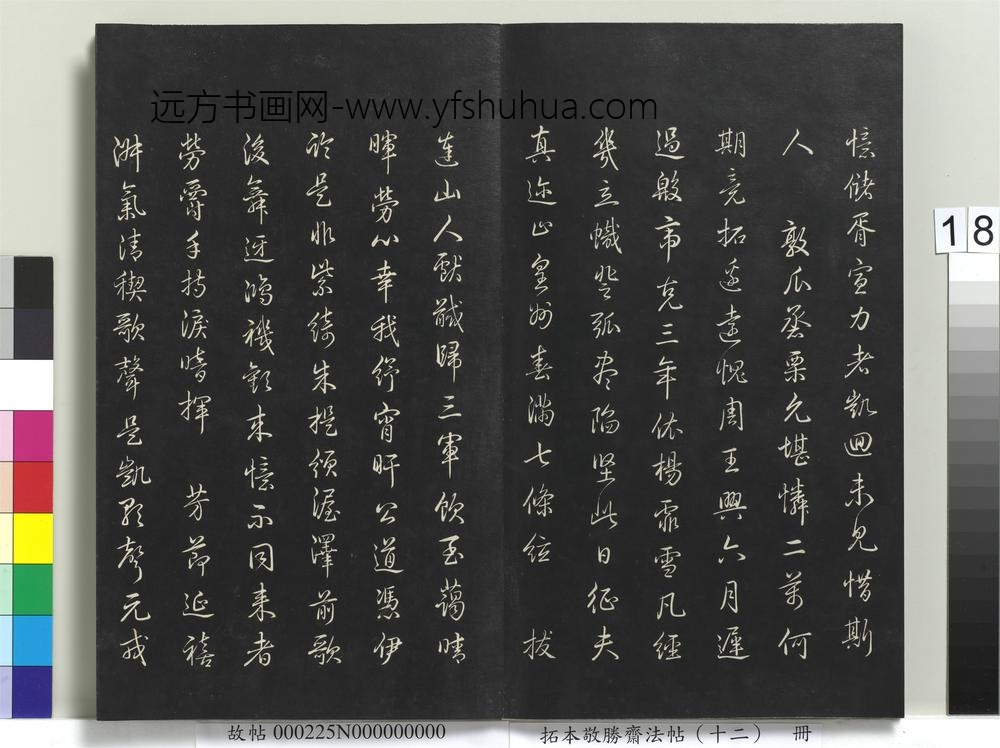 远方书画网-www.yfshuhua.com
憶儲胥宣力者凱迴未見惜斯
人 敦瓜蒸栗允堪憐二萬何
期竟拓邊遠愧周王興六月遲
過殷帝克三年依楊霏雪凡經
幾立幟登弧盡陷堅此日征夫
真迩止皇州春滿七條絃 拔
達山人獻馘歸三軍飲至藹晴
暉勞心幸我紓宵旰公道憑伊
論是非紫綺朱提頒渥澤前歌
後舞迓鴻禨歡来憶不同来者
勞爵手持淚暗揮 芳節延禧
淑氣清稧歌聲是凱歌聲元戎
18
故帖 000225N000000000
拓本敬勝齋法帖（十二） 冊